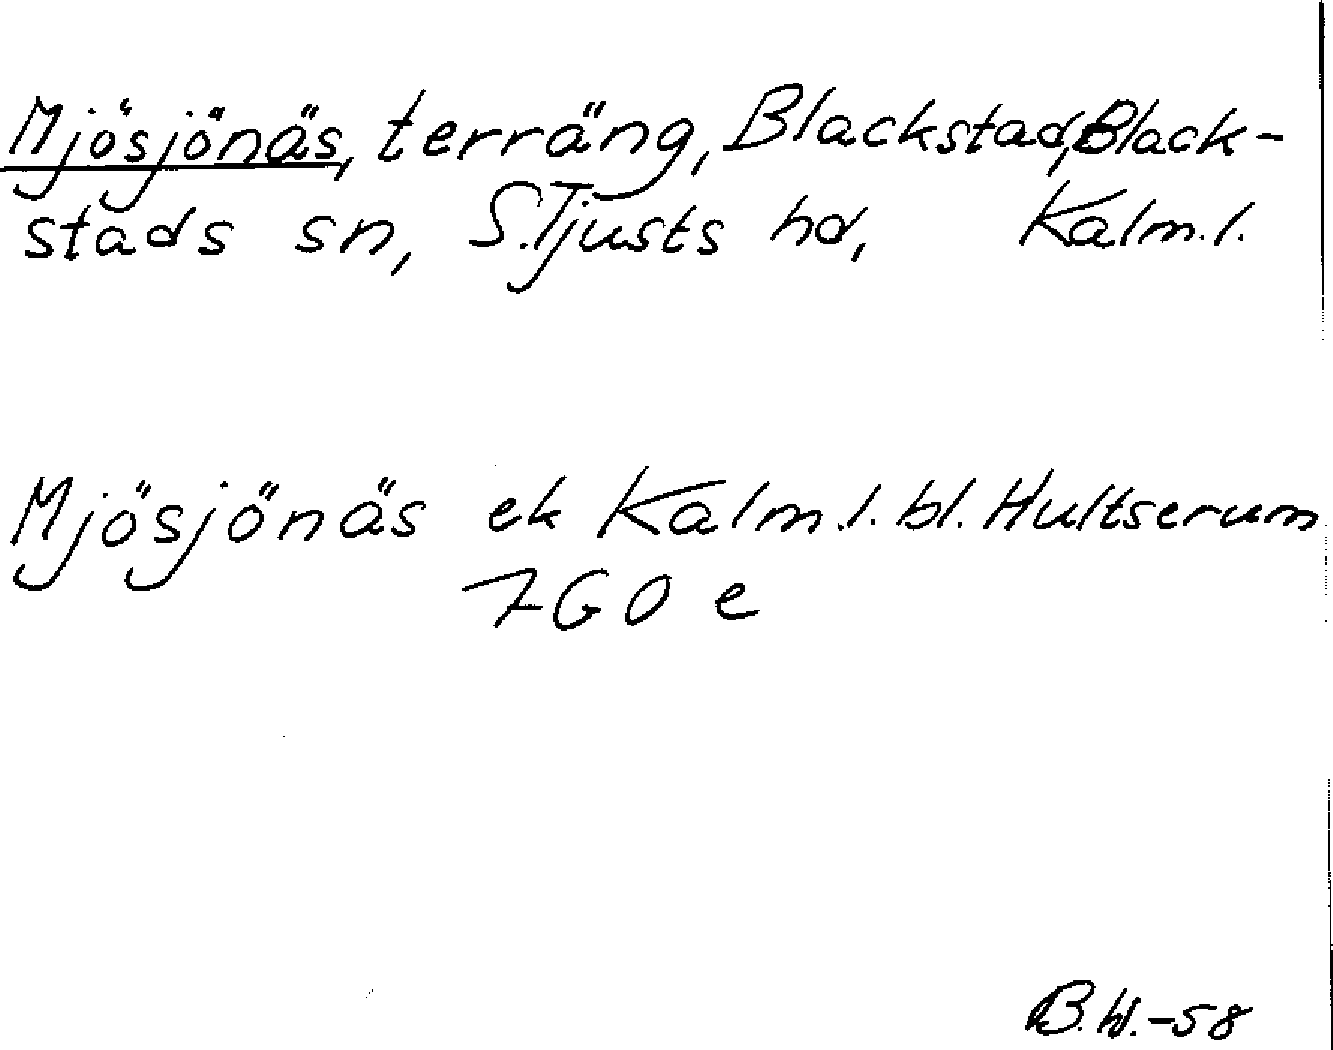 Mjösjönäs, terräng, Blackstad, Black-
stads sn, S. Tjusts hd, Kalm.l.
Mjösjönäs ek Kalm.l. bl. Hultserum
7G0 e
B.W.-58